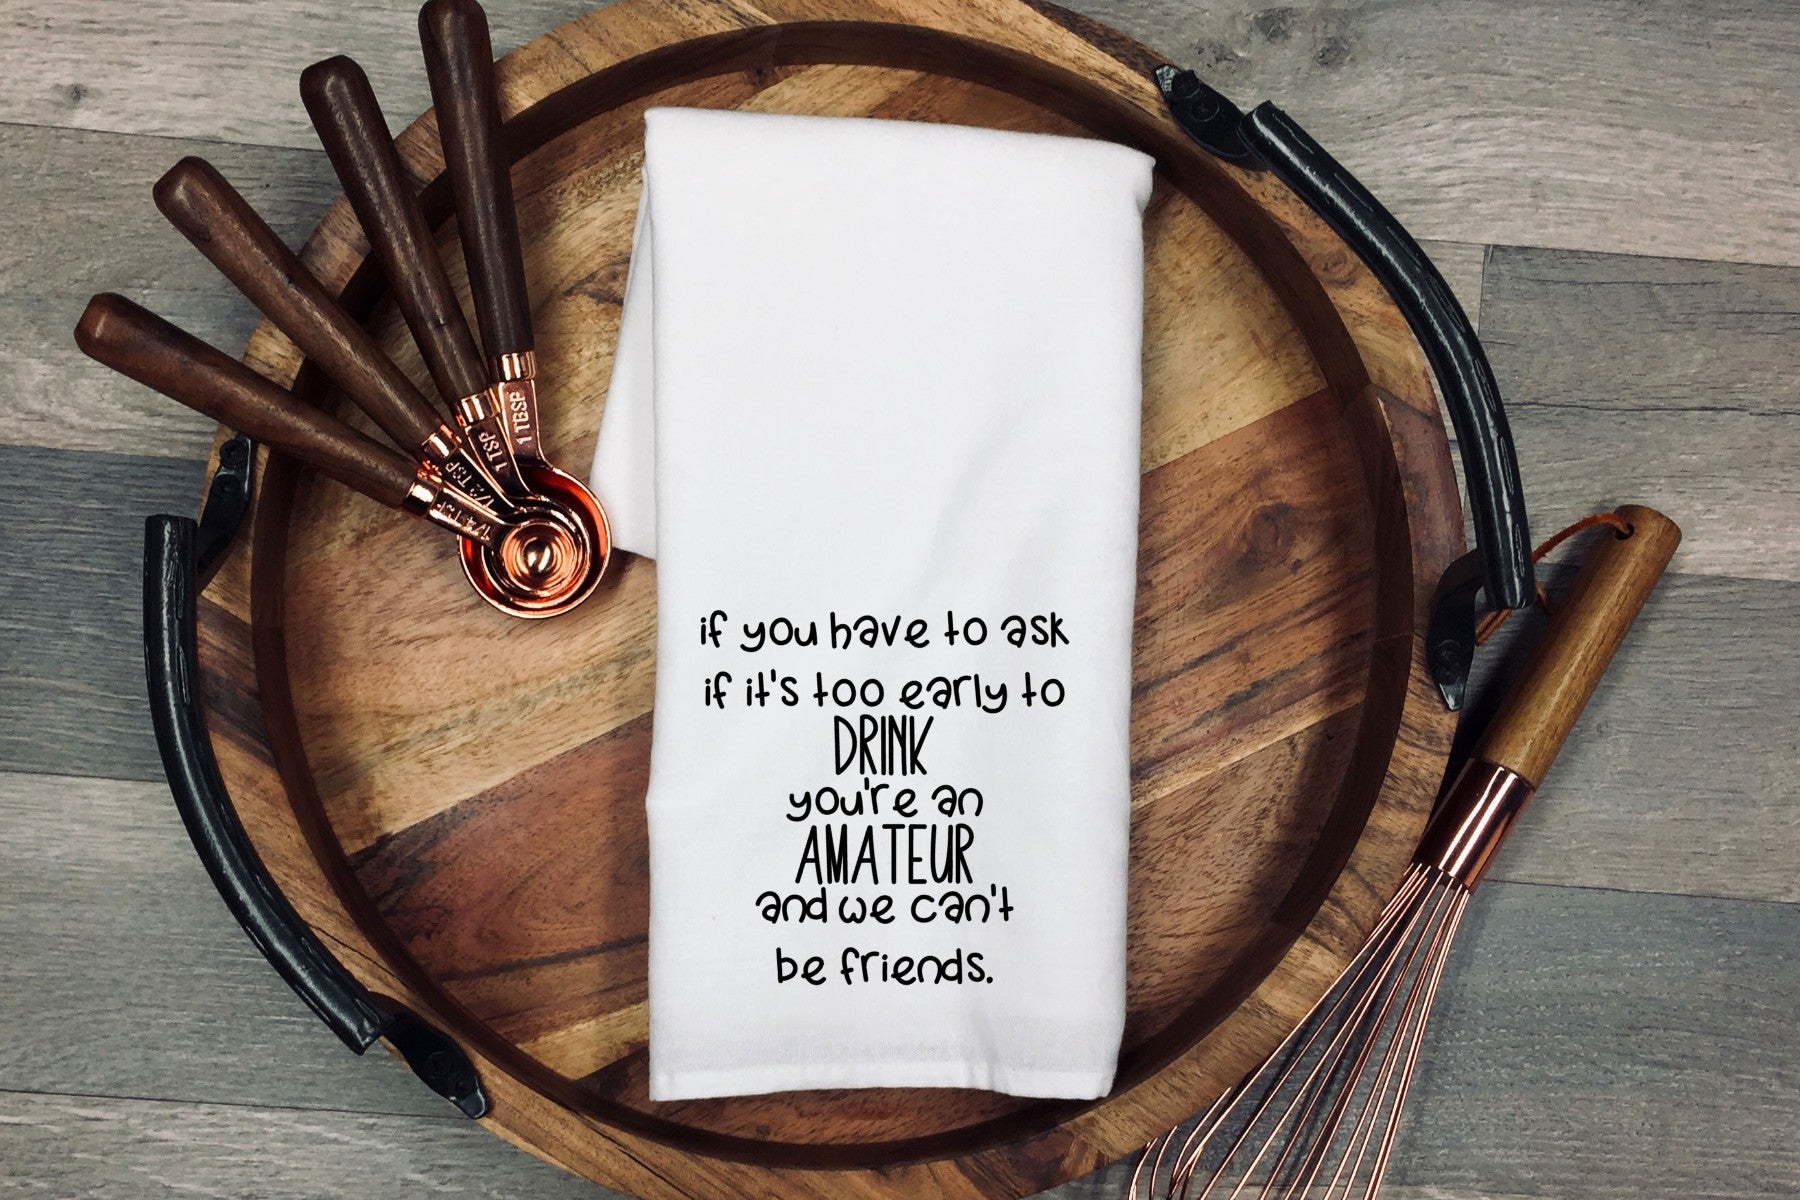 1 TBSP
1 TSP
1/2 TSP
1/4 TSP
if you have to ask
if it's too early to
DRINK
you're an
AMATEUR
and we can't
be friends.